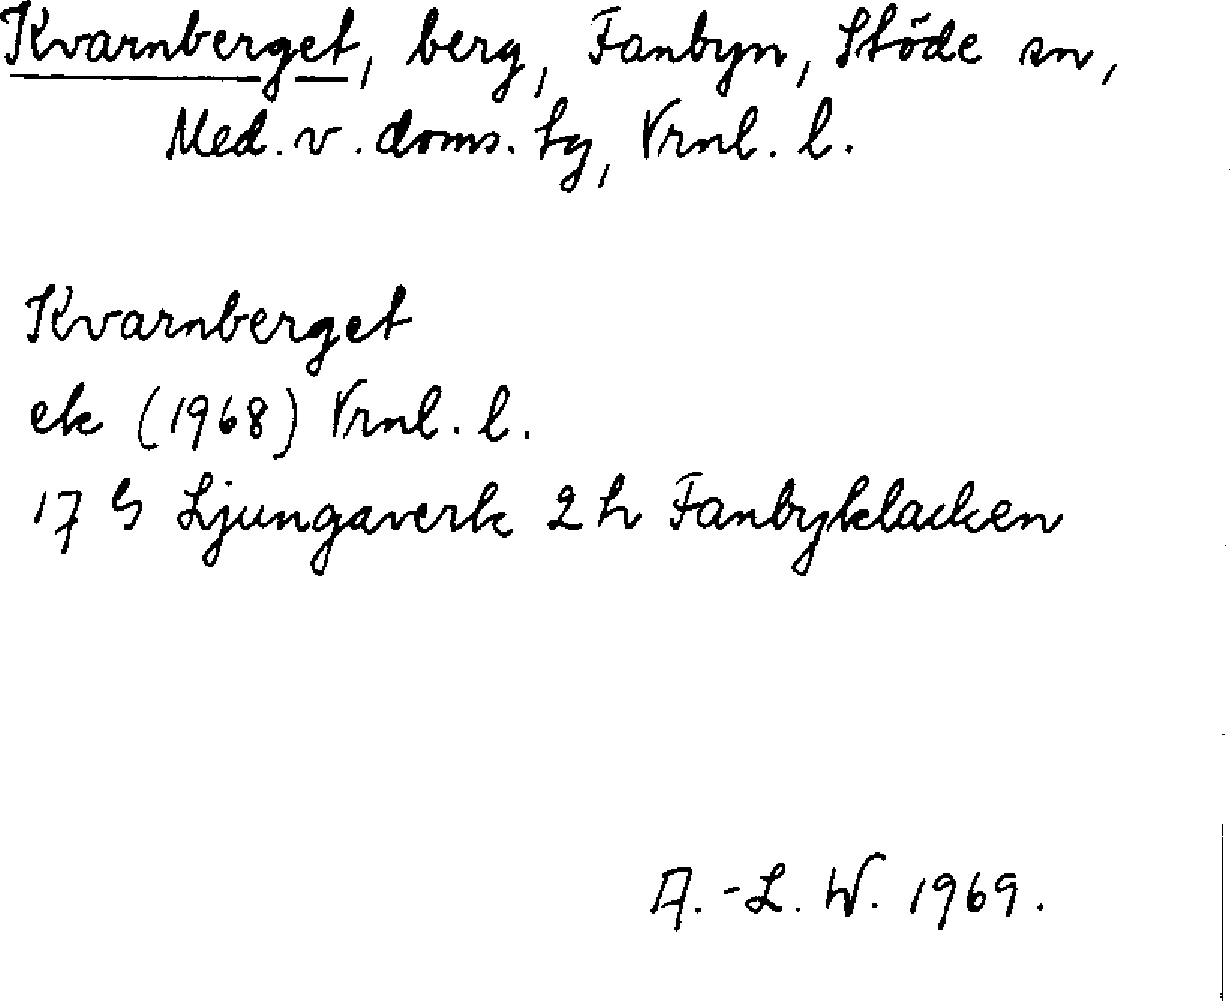 Kvarnberget, berg, Fanbyn, Stöde sn,
Med. v. doms. tg, Vrnl. l.
Kvarnberget
ek (1968) Vrnl. l.
17 G Ljungaverk 2 h Fanbyklacken
A.-L. W. 1969.